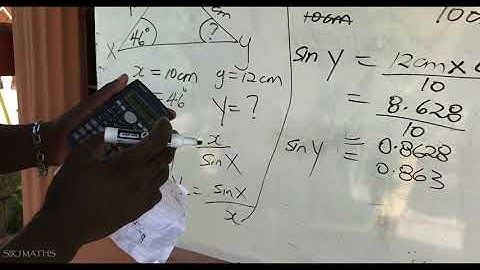 cm
46°
?
X
y
x = 10cm y = 12cm
= 46°
Y = ?
x
sin X
= sin X
x
10cm
100
sin Y = 12cm x
10
= 8.628
10
sin Y = 0.8628
0.863
SIRJ MATHS